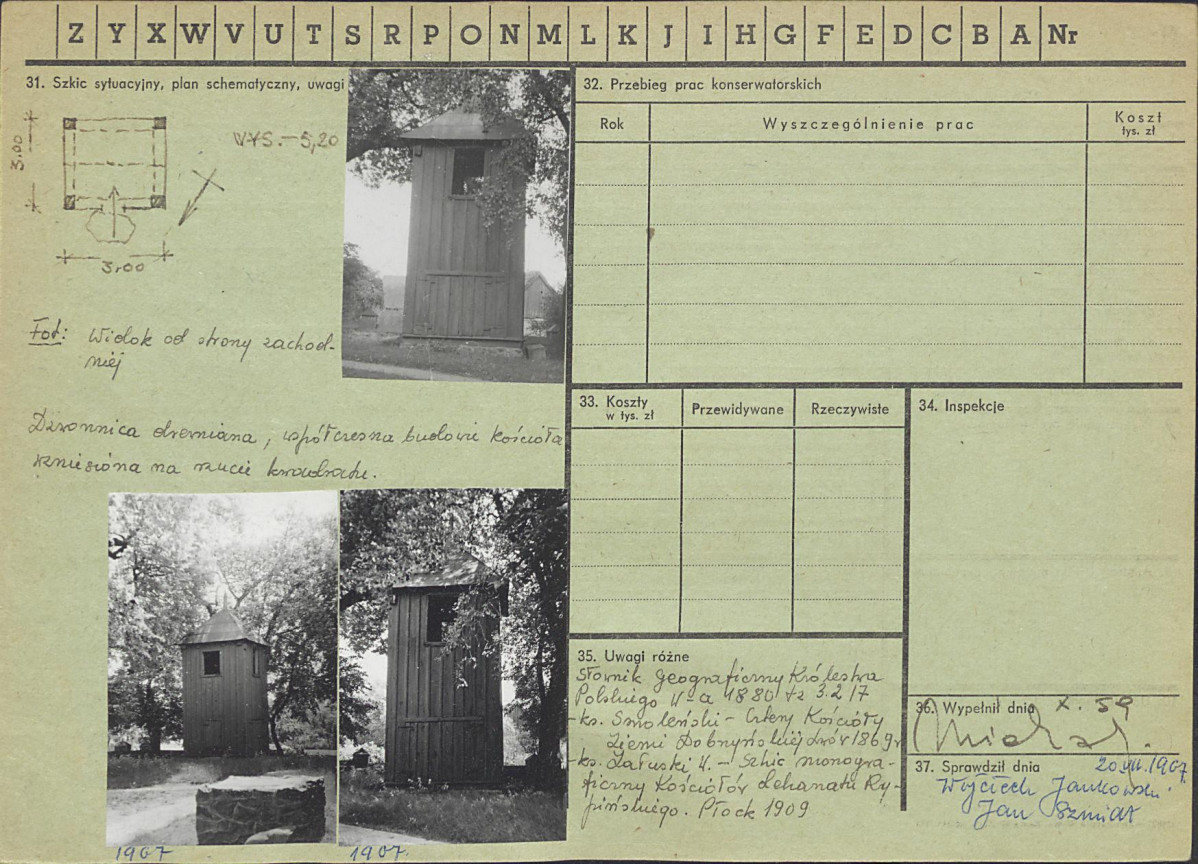 Z Y X W V U T S R P O N M L K J I H G F E D C B A Nr
31. Szkic sytuacyjny, plan schematyczny, uwagi
WYS. – 5,20
3.00
3,00
Fot: Widok od strony zachod-
niej
Dzwonnica drewniana, współczesna budowie kościoła
wzniesiona na rzucie kwadratu.
1967
1967.
32. Przebieg prac konserwatorskich
Rok
Wyszczególnienie prac
Koszt
tys. zł
33. Koszty
w tys. zł
Przewidywane
Rzeczywiste
34. Inspekcje
35. Uwagi różne
Słownik Geograficzny Królestwa
Polskiego W-a 1880 tz 3.2/7
- ks. Smoleński – Cztery Kościoły
Ziemi Dobrzyńskiej 1869 r
ks. Załuski W. – Szkic monogra-
ficzny Kościołów dekanatu Ry-
pińskiego. Płock 1909
36. Wypełnił dnia X. 59
37. Sprawdził dnia 1967.
Wojciech Jankowski
Jan Szmidt